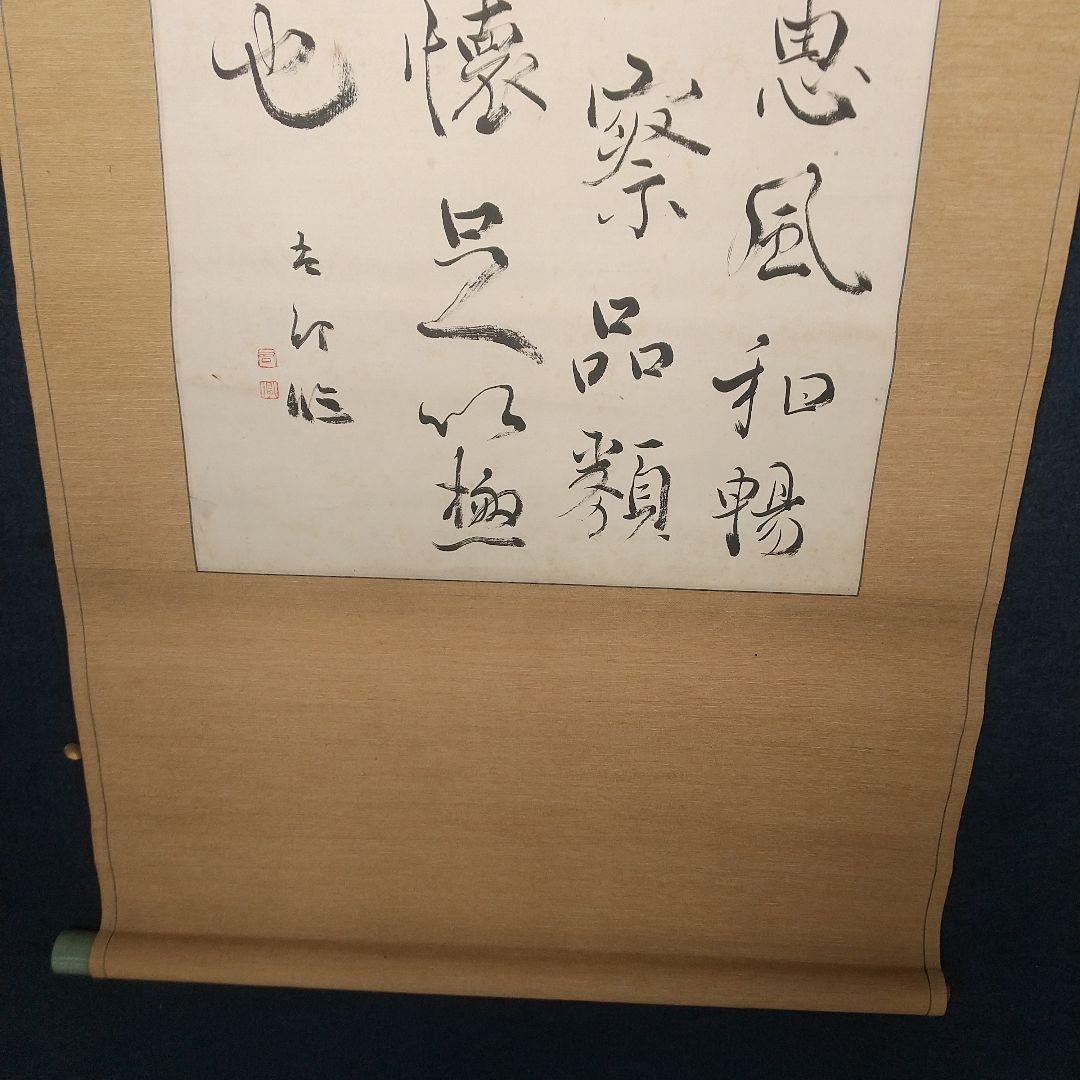 惠風和暢
察品類
懷足以極
也